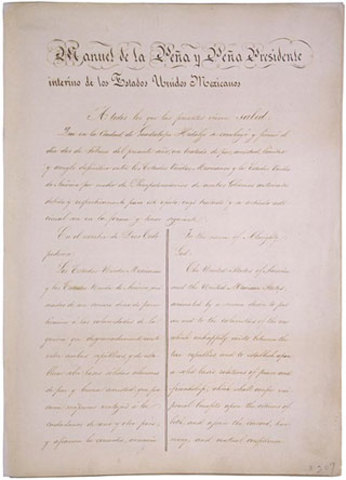 Manuel de la Peña y Peña Presidente
interino de los Estados Unidos Mexicanos
A todos los que las presentes vieren salud.
Que en la Ciudad de Guadalupe Hidalgo se concluyó y firmó el
día dos de Febrero del presente año, un tratado de paz, amistad, límites
y arreglo definitivo entre los Estados Unidos Mexicanos y los Estados Unidos
de América por medio de Plenipotenciarios de ambos Gobiernos autorizados
debida y respectivamente para este efecto, cuyo tratado y su artículo adi-
cional son en la forma y tenor siguiente.
En el nombre de Dios Todo-
poderoso:
Los Estados Unidos Mexicanos
y los Estados Unidos de América, ani-
mados de un sincero deseo de poner
término a las calamidades de la
guerra que desgraciadamente existe
entre ambas repúblicas, y de esta-
blecer sobre bases sólidas relaciones
de paz y buena amistad, que pro-
curen recíprocas ventajas a los
ciudadanos de uno y otro país,
y afiancen la concordia, armonía
In the name of Almighty
God:
The United States of America
and the United Mexican States,
animated by a sincere desire to put
an end to the calamities of the war
which unhappily exists between the
two republics, and to establish upon
a solid basis relations of peace and
friendship, which shall confer reci-
procal benefits upon the citizens of
both, and assure the concord, har-
mony and mutual confidence